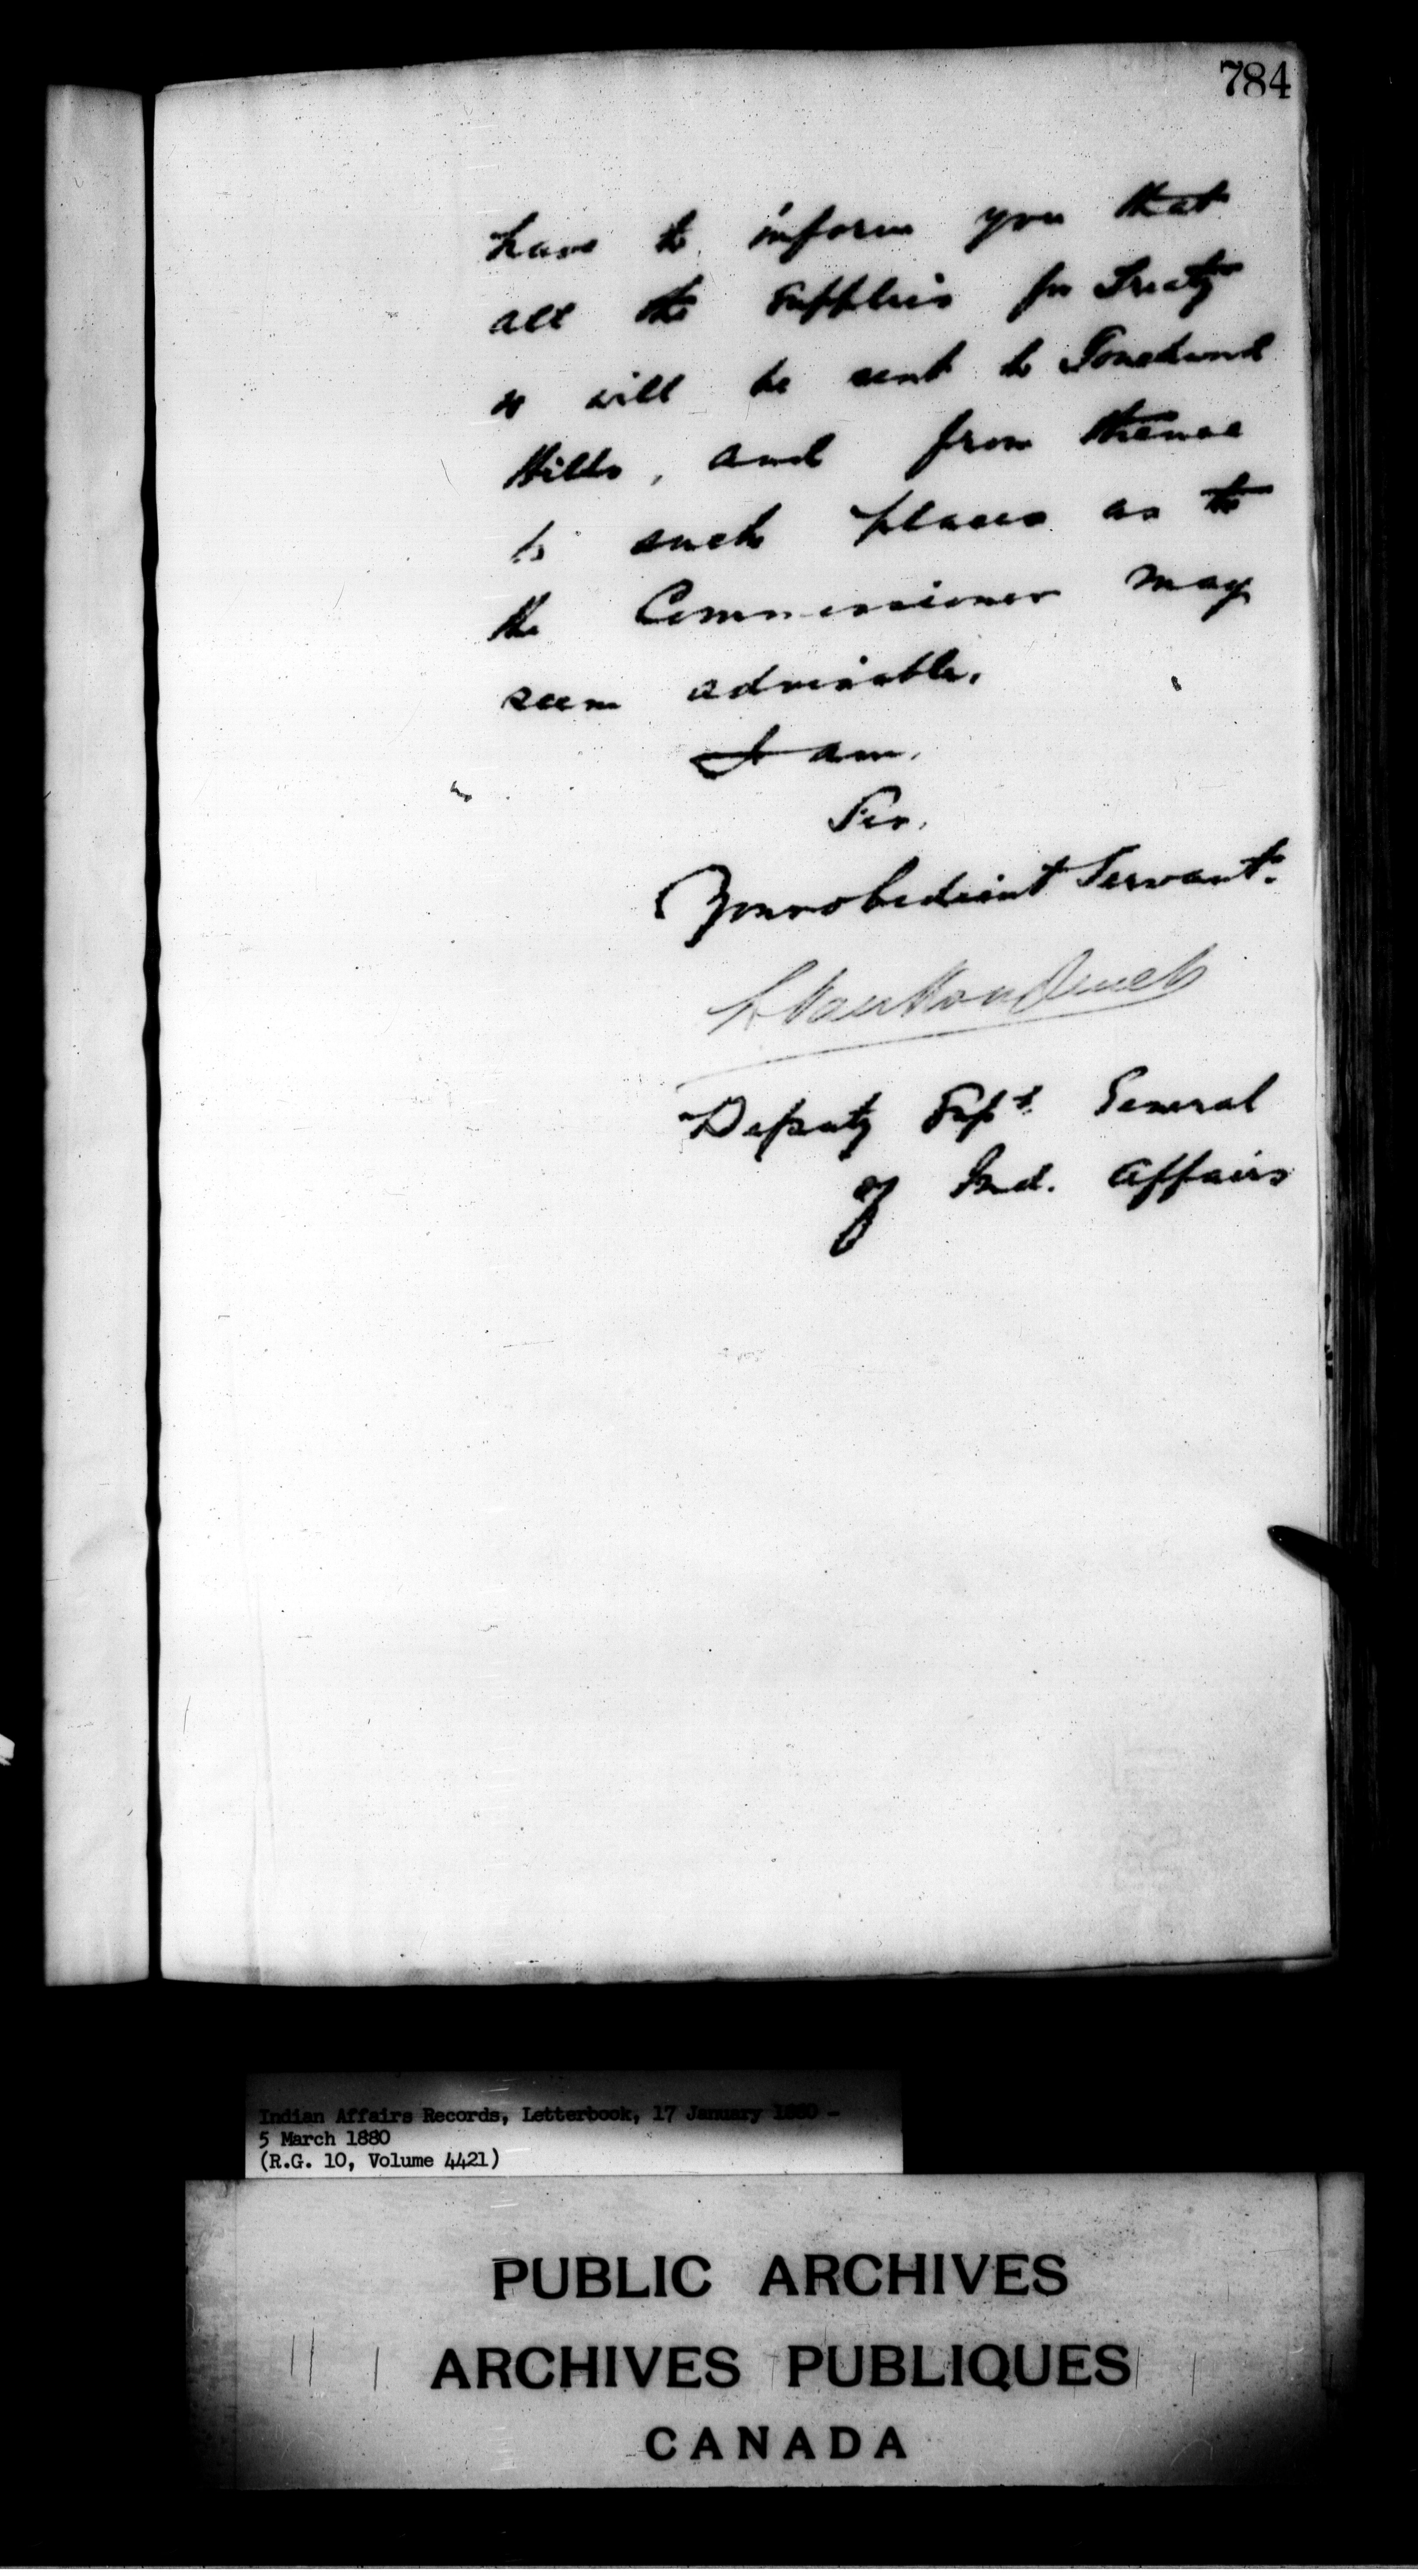 784
have to inform you that
all the supplies for Treaty
will be sent to Touchwood
Hills, and from thence
to such places as to
the Commissioner may
seem advisable.
I am,
Sir,
Your obedient Servant.
L. VanKoughnet
Deputy Sup^t. General
of Ind. Affairs
Indian Affairs Records, Letterbook, 17 January 1880 -
5 March 1880
(R.G. 10, Volume 4421)
PUBLIC ARCHIVES
ARCHIVES PUBLIQUES
CANADA